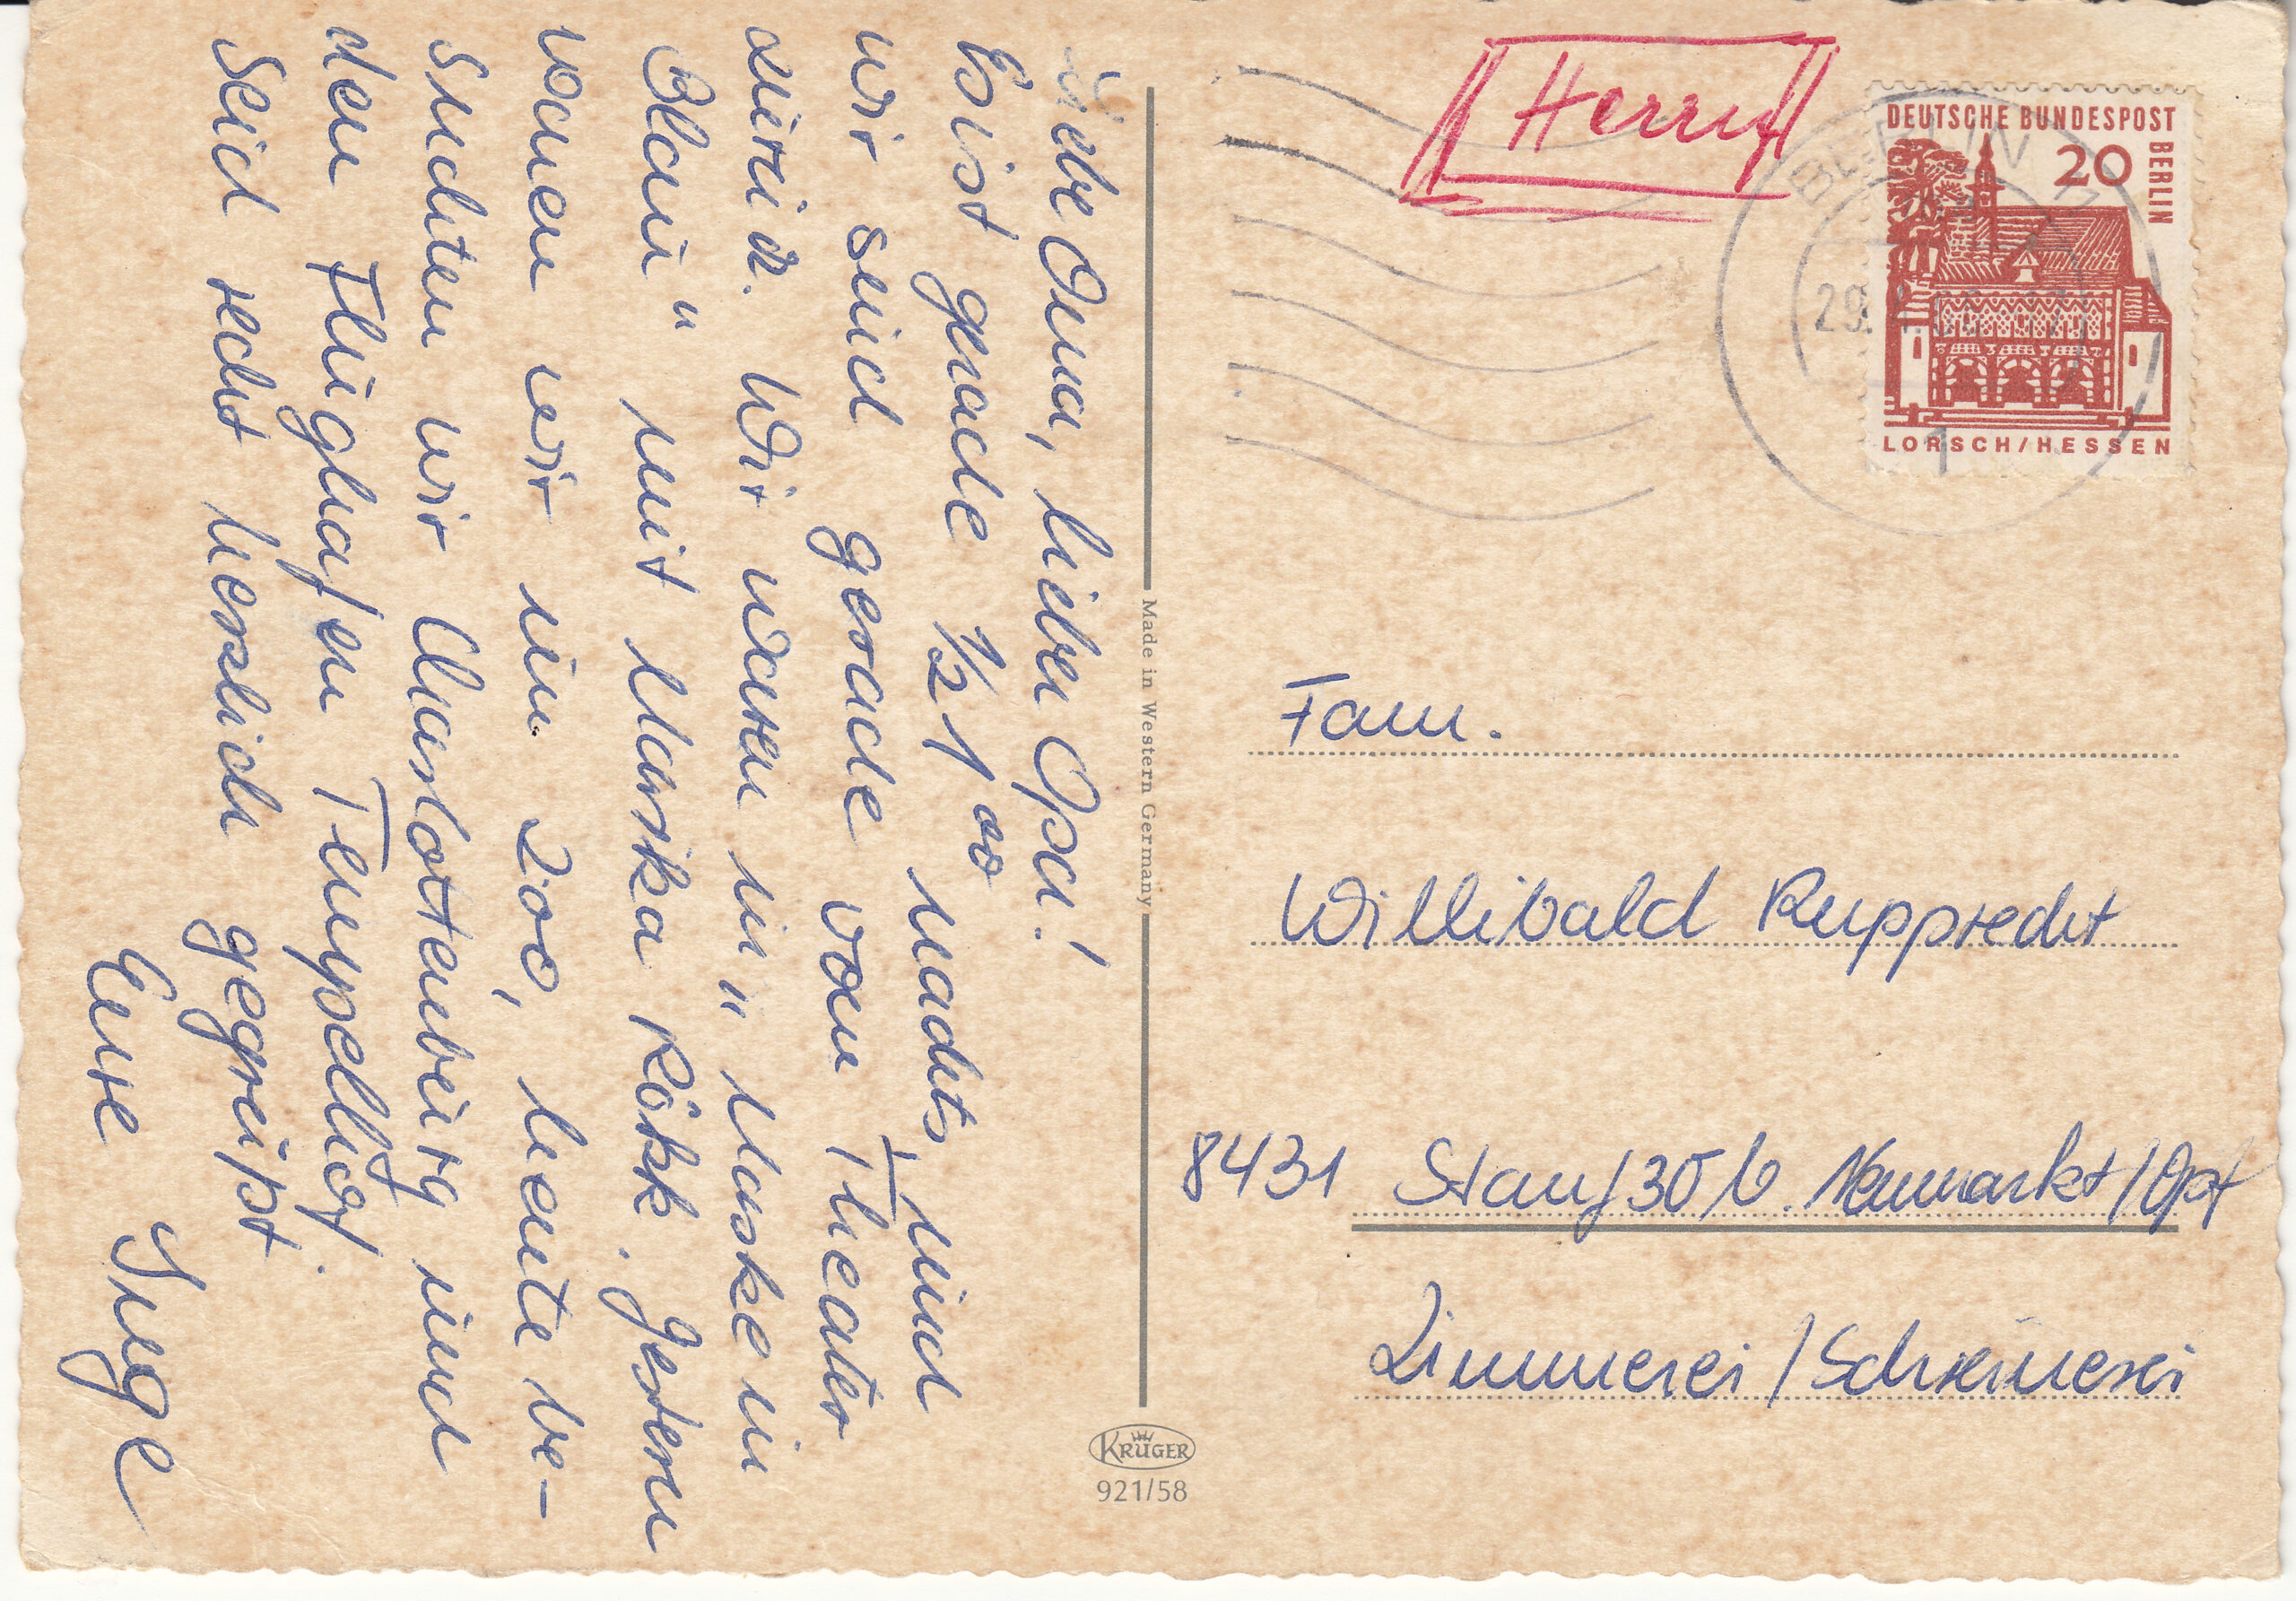 Liebe Oma, lieber Opa!
Es ist gerade ½ 1 00 nachts, und
wir sind gerade vom Theater
zurück. Wir waren in "Maske in
Blau" mit Marika Rökk. Gestern
waren wir im Zoo, heute be-
suchten wir Charlottenburg und
den Flughafen Tempelhof.
Seid recht herzlich gegrüßt
Eure Inge
Made in Western Germany
KRÜGER
921/58
DEUTSCHE BUNDESPOST
BERLIN
20
LORSCH/HESSEN
BERLIN
1
Fam.
Willibald Rupprecht
8431 Stauf 30 b. Neumarkt/Opf
Zimmerei/Schreinerei